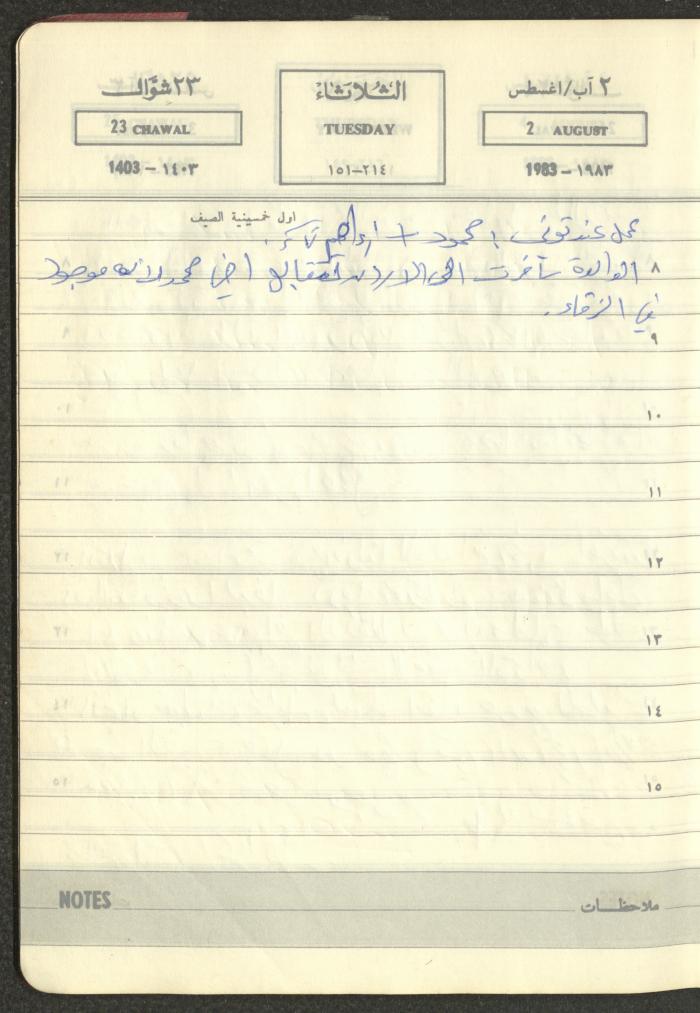 ٢ آب/اغسطس
2 AUGUST
1983 – ١٩٨٣
الثلاثاء
TUESDAY
٢١٤–١٥١
٢٣ شوّال
23 CHAWAL
1403 – ١٤٠٣
اول خمسينية الصيف
عمل عند توني : محمود + ابراهيم
٨ الوالدة سافرت الى الاردن لمقابلة اخي محمود لانه موجود
في الزرقاء.
٩
١٠
١١
١٢
١٣
١٤
١٥
NOTES
ملاحظات